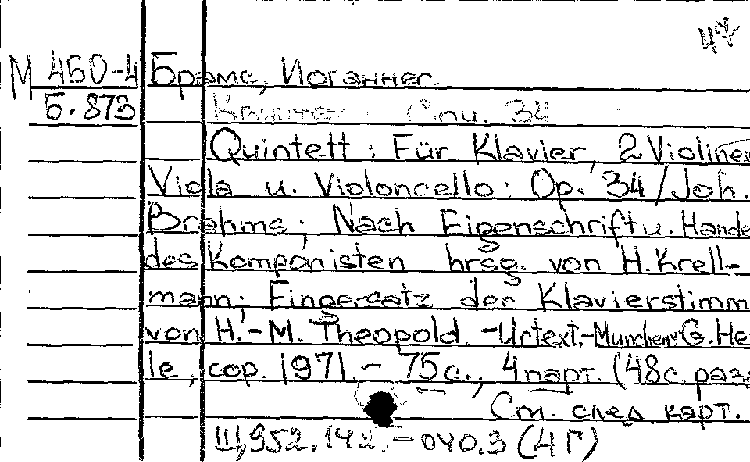 47
М 450-4 Брамс, Иоганнес.
Б. 873 Квинтет. Соч. 34
Quintett : Für Klavier, 2 Violinen
Viola u. Violoncello : Op. 34 / Joh.
Brahms ; Nach Eigenschrift u. Hande
des Komponisten hrsg. von H. Krell-
mann; Fingersatz der Klavierstimm
von H.-M. Theopold. - Urtext. - München: G. He
le, cop. 1971. - 75 с., 4 парт. (48 с. разд
См. след карт.
Ш,952.142.-040.3 (4 Г)